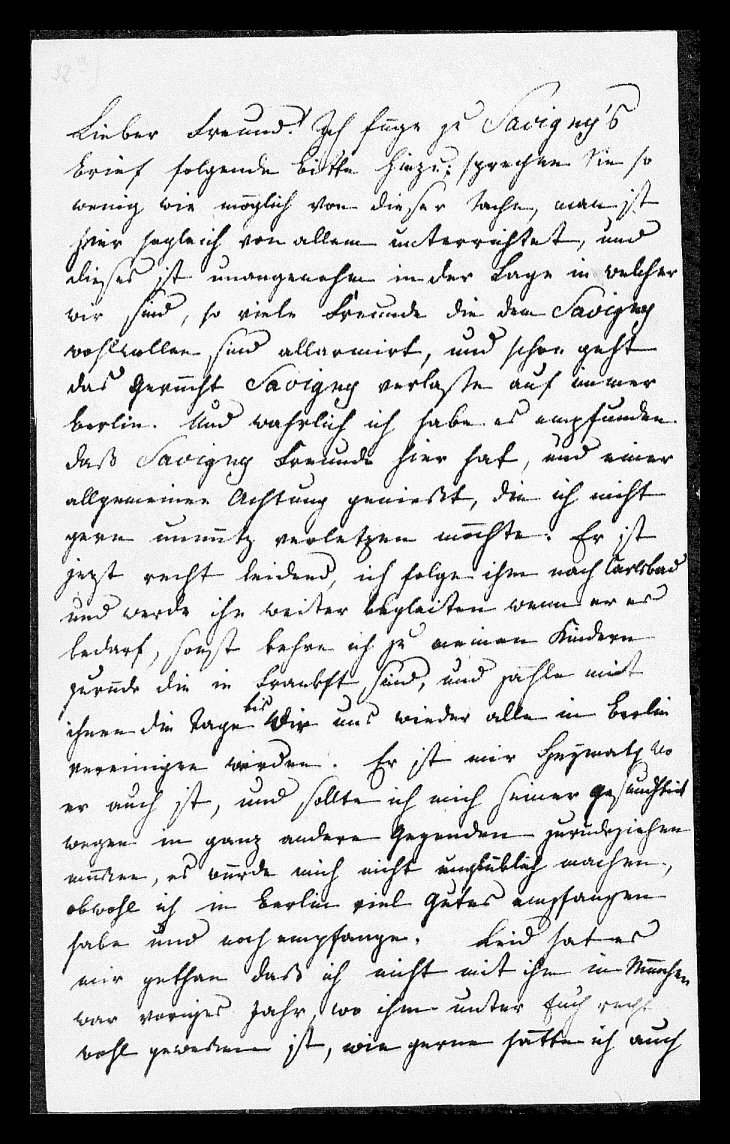 Lieber Freund! Ich füge zu Savigny's
Brief folgende Bitte hinzu: sprechen Sie so
wenig wie möglich von dieser Sache, man ist
hier sogleich von allem unterrichtet, und
dieses ist unangenehm in der Lage in welcher
wir sind, so viele Freunde die dem Savigny
wohlwollen sind allarmirt, und schon geht
das Gerücht Savigny verlasse auf immer
Berlin. Und wahrlich ich habe es empfunden
daß Savigny Freunde hier hat, und einer
allgemeinen Achtung genießt, die ich nicht
gern unnütz verletzen möchte. Er ist
jezt recht leidend, ich folge ihm nach Carlsbad
und werde ihn weiter begleiten wenn er es
bedarf, sonst kehre ich zu meinen Kindern
zurück die in Frankft sind, und zähle mit
ihnen die Tage bis wir uns wieder alle in Berlin
vereinigen werden. Er ist mir Heymath wo
er auch ist, und sollte ich mich seiner Gesundheit
wegen in ganz andere Gegenden zurückziehen
müssen, es würde mich nicht unglücklich machen,
obwohl ich in Berlin viel Gutes empfangen
habe und noch empfange. Leid hat es
mir gethan daß ich nicht mit ihm in München
war voriges Jahr, wo ihm unter Euch recht
wohl gewesen ist, wie gerne hätte ich auch